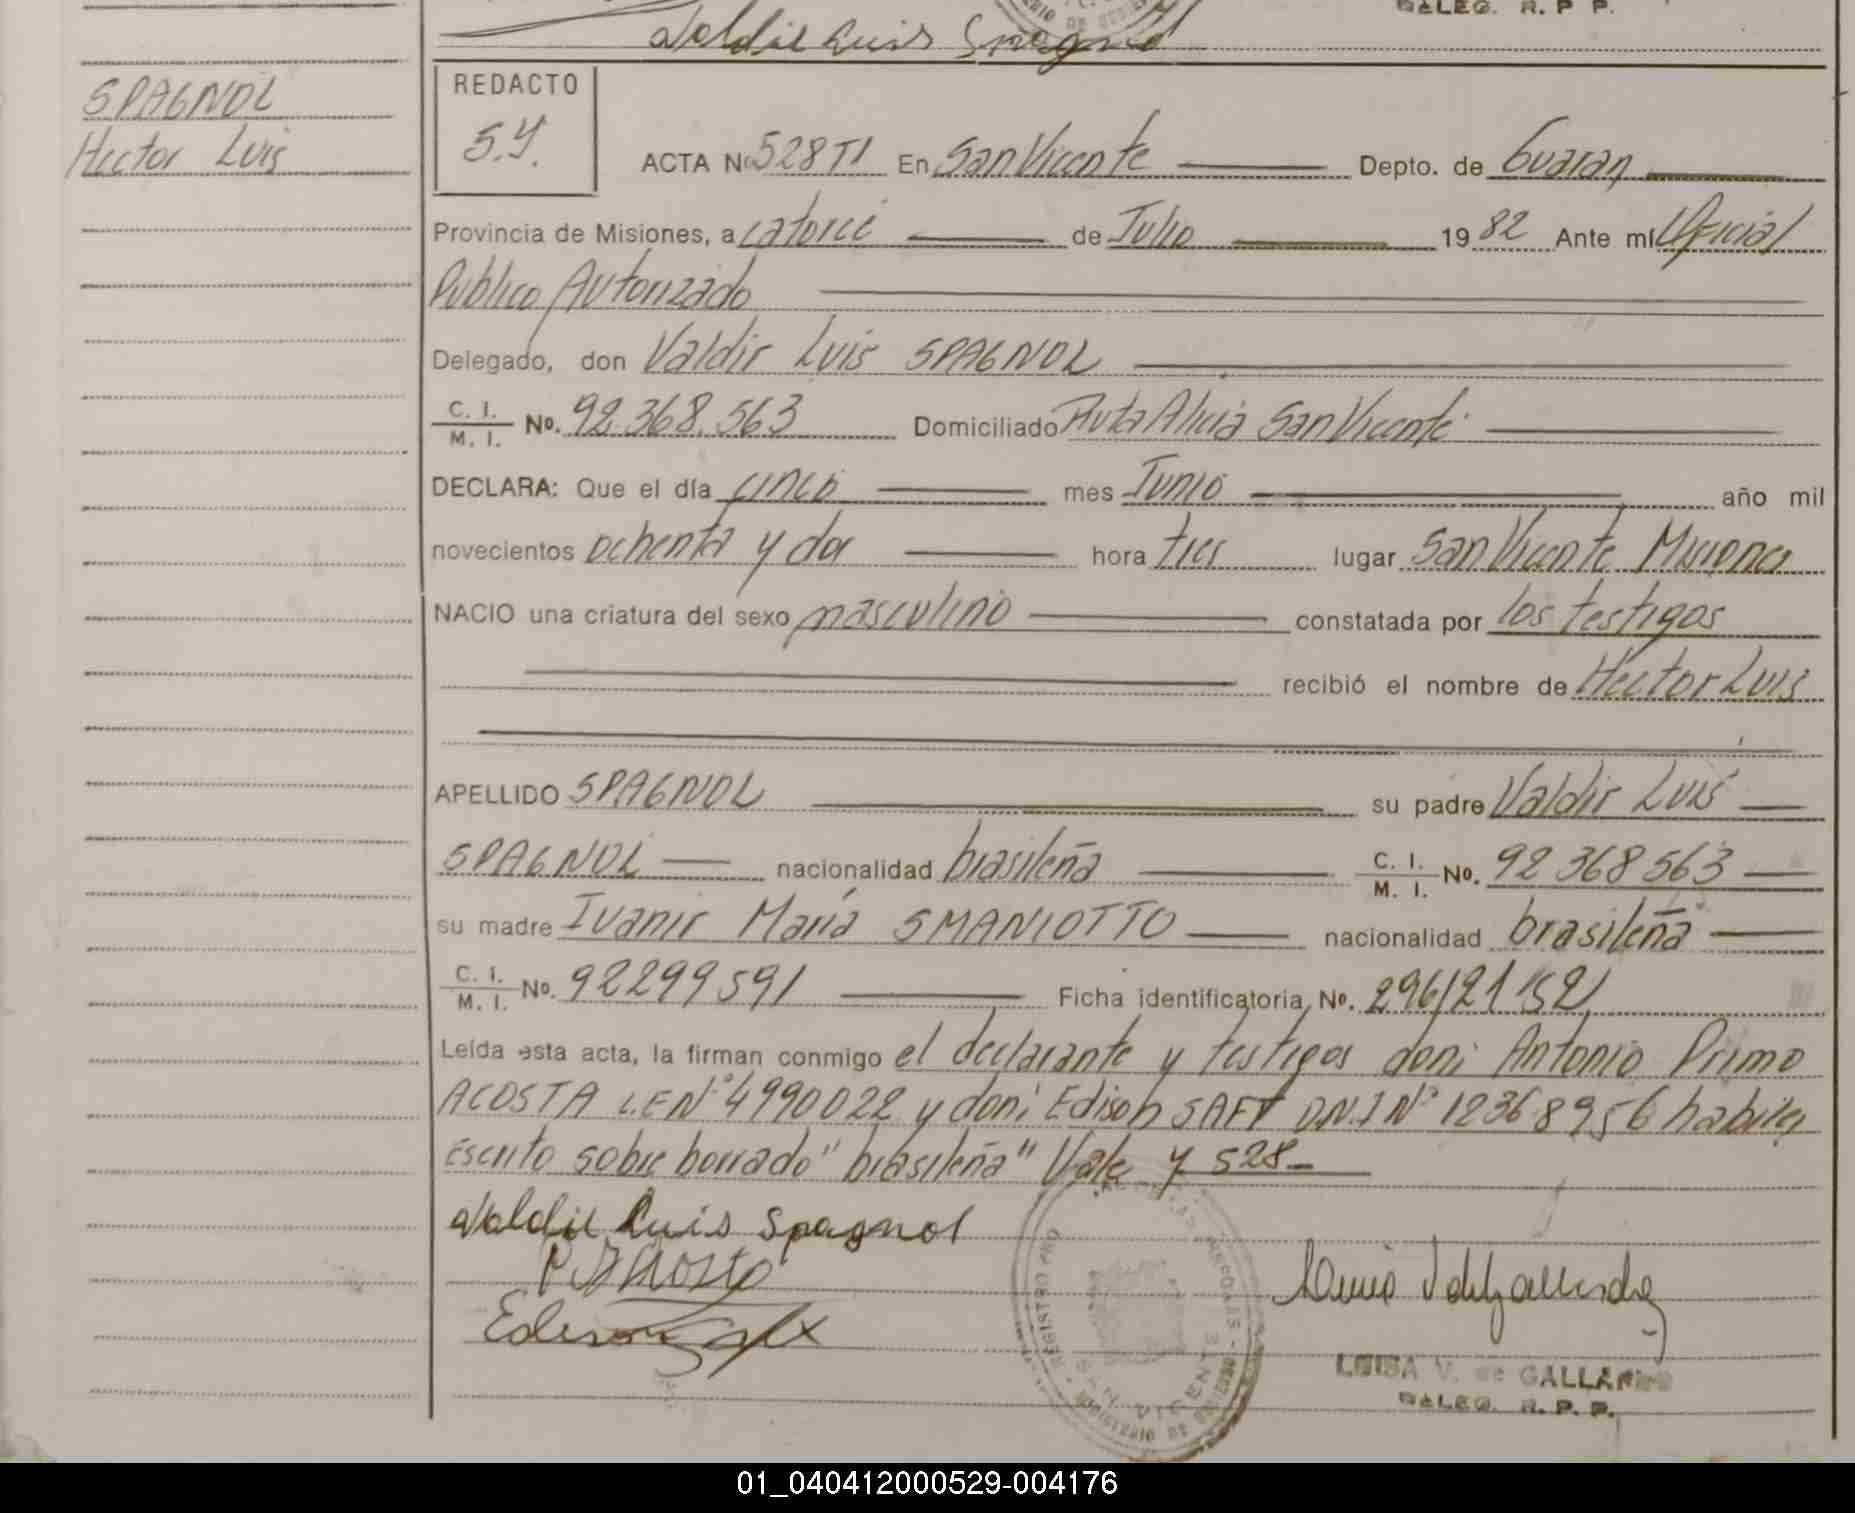 DELEG. R. P. P.
Valdir Luis Spagnol
SPAGNOL
Hector Luis
REDACTO
S.Y.
ACTA No 528 TI En San Vicente Depto. de Guaran
Provincia de Misiones, a catorce de Julio 1982 Ante mí Oficial
Publico Autorizado
Delegado, don Valdir Luis SPAGNOL
C. I. / M. I. No. 92.368.563 Domiciliado Ruta Alicia San Vicente
DECLARA: Que el día cinco mes Junio año mil
novecientos ochenta y dos hora tres lugar San Vicente Misiones
NACIO una criatura del sexo masculino constatada por los testigos
recibió el nombre de Hector Luis
APELLIDO SPAGNOL su padre Valdir Luis
SPAGNOL nacionalidad brasileña C. I. / M. I. No. 92 368 563
su madre Ivanir María SMANIOTTO nacionalidad brasileña
C. I. / M. I. No. 92299591 Ficha identificatoria, No.
Leída esta acta, la firman conmigo el declarante y testigos don: Antonio Primo
ACOSTA L.E Nº 4990022 y don: Edison SAFT D.N.I Nº 12368956 habiles
Escrito sobre borrado "brasileña" Vale y 528-
Valdir Luis Spagnol
REGISTRO SAN VICENTE
LUISA V. de GALLARDO
DELEG. R. P. P.
01_040412000529-004176